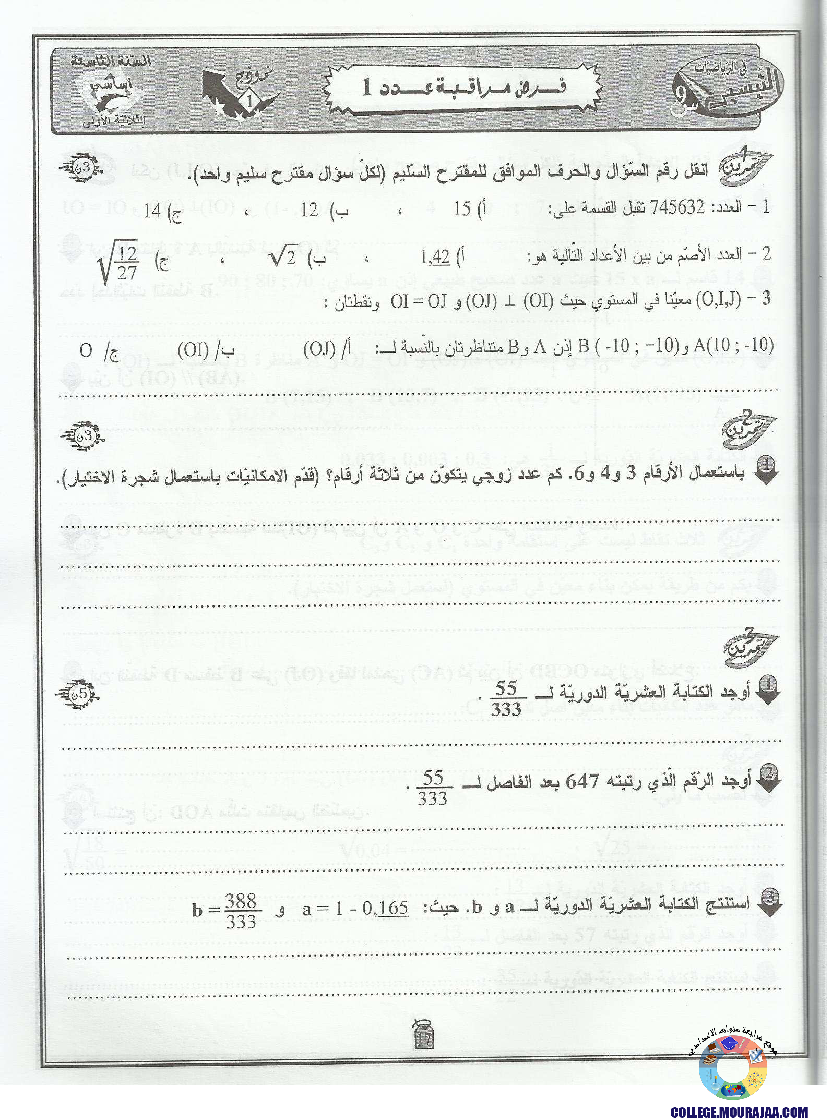 السنة التاسعة
أساسي
الثلاثية الأولى
نموذج
1
فرض مراقبة عدد 1
في الرياضيات
9
تمرين 1
3ن
انقل رقم السّؤال والحرف الموافق للمقترح السّليم (لكلّ سؤال مقترح سليم واحد).
1 - العدد: 745632 تقبل القسمة على: أ) 15 ، ب) 12 ، ج) 14
2 - العدد الأصمّ من بين الأعداد التّالية هو: أ) 1,42 ، ب) √2 ، ج) √(12/27)
3 - (O,I,J) معيّنا في المستوي حيث (OI) ⊥ (OJ) و OI = OJ ونقطتان :
A(10 ; -10) و B ( -10 ; -10) إذن A وB متناظرتان بالنّسبة لـ: أ/ (OJ) ب/ (OI) ج/ O
تمرين 2
3ن
1 باستعمال الأرقام 3 و4 و6. كم عدد زوجي يتكوّن من ثلاثة أرقام؟ (قدّم الامكانيّات باستعمال شجرة الاختيار).
تمرين
5ن
1 أوجد الكتابة العشريّة الدوريّة لـ 55/333 .
2 أوجد الرقم الّذي رتبته 647 بعد الفاصل لـ 55/333 .
3 استنتج الكتابة العشريّة الدوريّة لـ a و b. حيث: a = 1 - 0,165 و b = 388/333
COLLEGE.MOURAJAA.COM